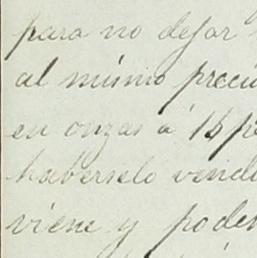 para no dejar
al mismo preci
en onzas á 16 p
haberselo vend
viene y poder